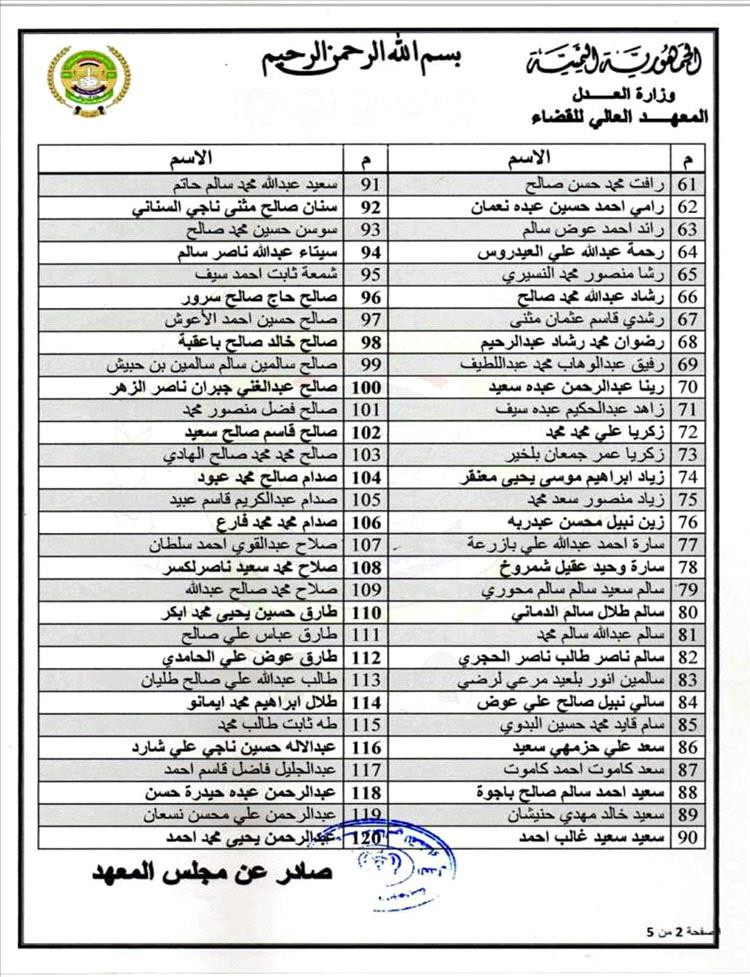 بسم الله الرحمن الرحيم
الجمهورية اليمنية
وزارة العدل
المعهد العالي للقضاء
م الاسم م الاسم
61 رافت محمد حسن صالح 91 سعيد عبدالله محمد سالم حاتم
62 رامي احمد حسين عبده نعمان 92 سنان صالح مثنى ناجي السناني
63 رائد احمد عوض سالم 93 سوسن حسين محمد صالح
64 رحمة عبدالله علي العيدروس 94 سيتاء عبدالله ناصر سالم
65 رشا منصور محمد النسيري 95 شمعة ثابت احمد سيف
66 رشاد عبدالله محمد صالح 96 صالح حاج صالح سرور
67 رشدي قاسم عثمان مثنى 97 صالح حسين احمد الأعوش
68 رضوان محمد رشاد عبدالرحيم 98 صالح خالد صالح باعقبة
69 رفيق عبدالوهاب محمد عبداللطيف 99 صالح سالمين سالم سالمين بن حبيش
70 رينا عبدالرحمن عبده سعيد 100 صالح عبدالغني جبران ناصر الزهر
71 زاهد عبدالحكيم عبده سيف 101 صالح فضل منصور محمد
72 زكريا علي محمد محمد 102 صالح قاسم صالح سعيد
73 زكريا عمر جمعان بلخير 103 صالح محمد محمد صالح الهادي
74 زياد ابراهيم موسى يحيى معنقر 104 صدام صالح محمد عبود
75 زياد منصور سعد محمد 105 صدام عبدالكريم قاسم عبيد
76 زين نبيل محسن عبدربه 106 صدام محمد محمد فارع
77 سارة احمد عبدالله علي بازرعة 107 صلاح عبدالقوي احمد سلطان
78 سارة وحيد عقيل شمروخ 108 صلاح محمد سعيد ناصرلكسر
79 سالم سعيد سالم سالم محوري 109 صلاح محمد صالح عبدالله
80 سالم طلال سالم الدماني 110 طارق حسين يحيى محمد ابكر
81 سالم عبدالله سالم محمد 111 طارق عباس علي صالح
82 سالم ناصر طالب ناصر الحجري 112 طارق عوض علي الحامدي
83 سالمين انور بلعيد مرعي لرضي 113 طالب عبدالله علي صالح طليان
84 سالي نبيل صالح علي عوض 114 طلال ابراهيم محمد ايمانو
85 سام قايد محمد حسين البدوي 115 طه ثابت طالب محمد
86 سعد علي حزمهي سعيد 116 عبدالاله حسين ناجي علي شارد
87 سعد كاموت احمد كاموت 117 عبدالجليل فاضل قاسم احمد
88 سعيد احمد سالم صالح باجوة 118 عبدالرحمن عبده حيدرة حسن
89 سعيد خالد مهدي حنيشان 119 عبدالرحمن علي محسن نسعان
90 سعيد سعيد غالب احمد 120 عبدالرحمن يحيى محمد احمد
صادر عن مجلس المعهد
صفحة 2 من 5